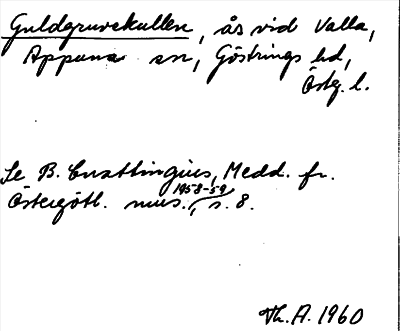 Guldgruvekullen, ås vid Valla,
Appuna sn, Göstrings hd,
Östg. l.
Se B. Cnattingius, Medd. fr.
Östergötl. mus. 1958-59, s. 8.
Th. A. 1960